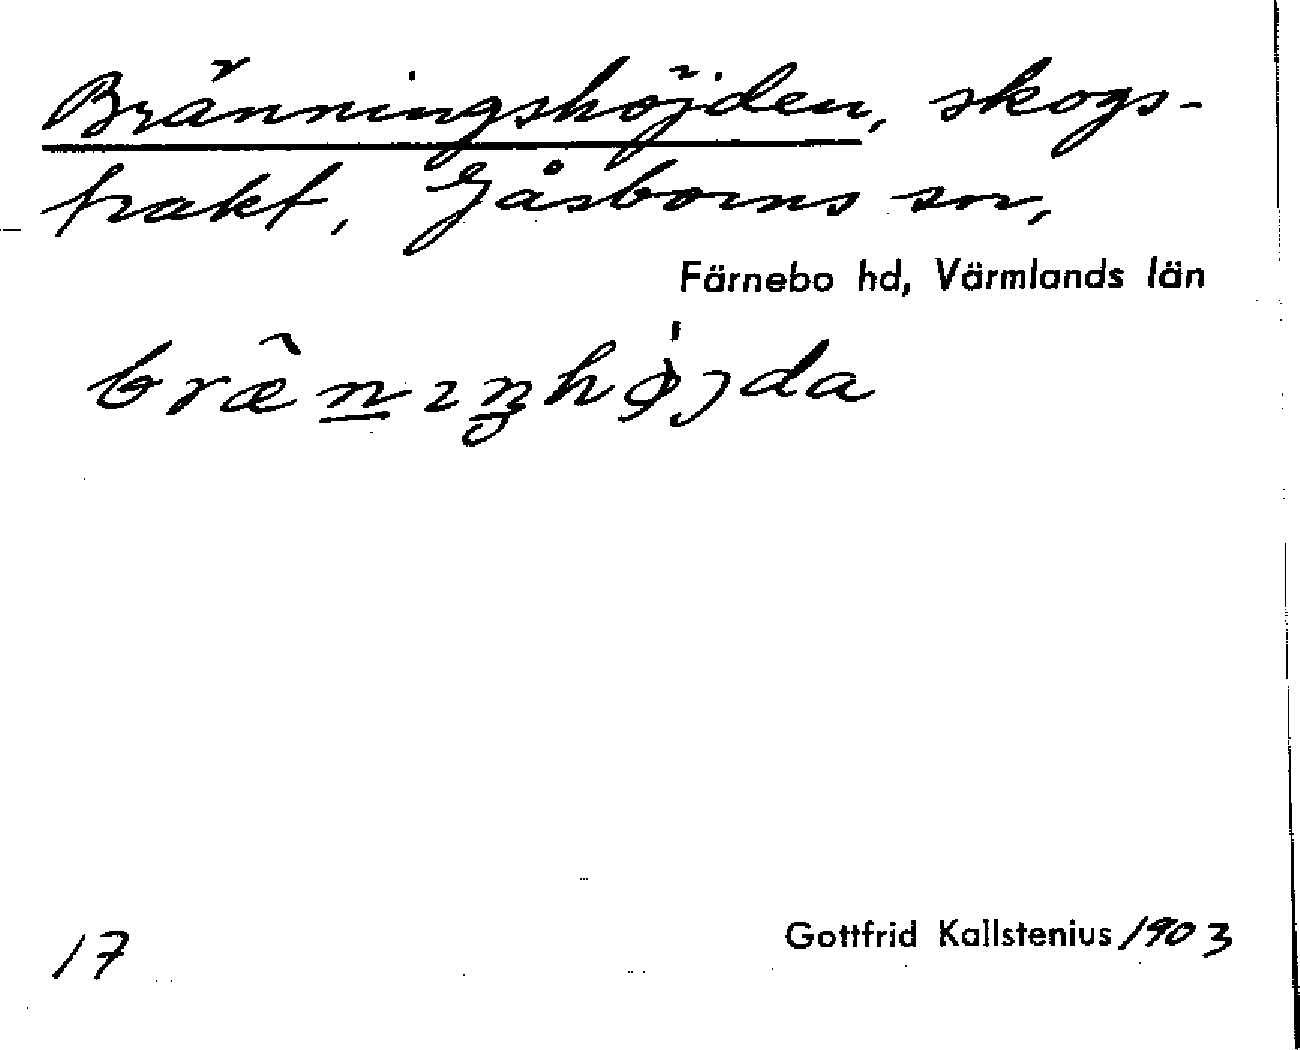 Bränningshöjden, skogs-
trakt, Gåsborns sn,
Färnebo hd, Värmlands län
bræ̂n̲ıŋhø̀jda
17
Gottfrid Kallstenius /1903